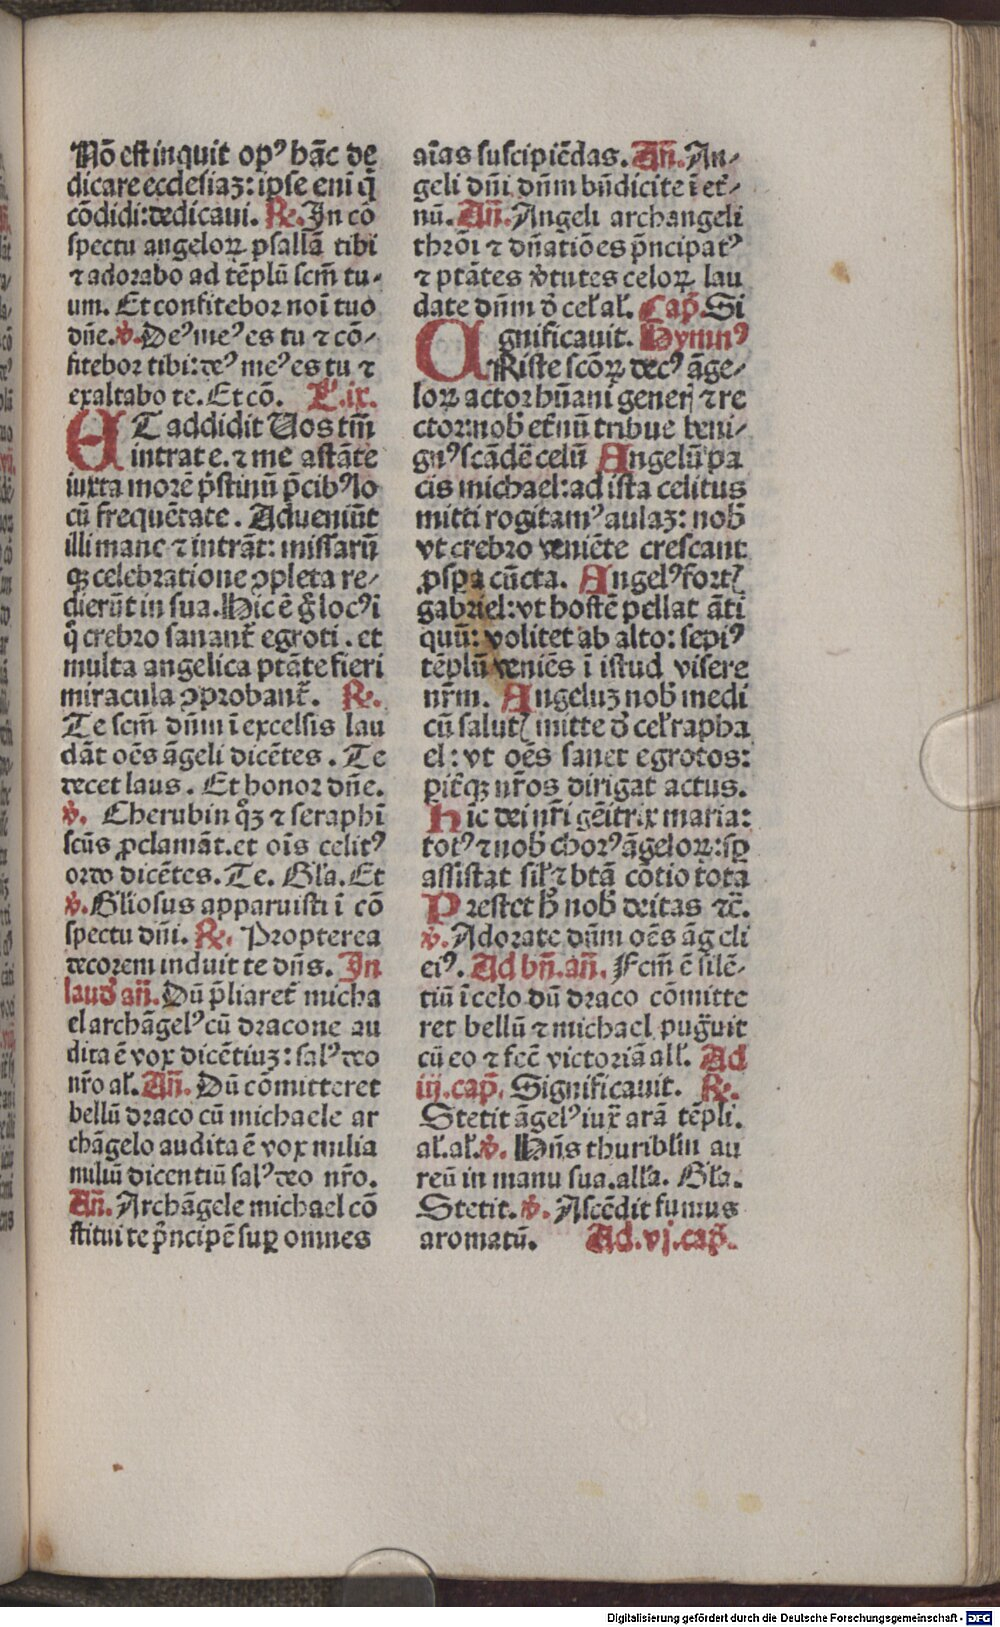 Nō est inquit opꝰ hāc de
dicare ecclesiaꝫ: ipse eni q̄
cōdidi: dedicaui. ℟. In cō
spectu angeloꝝ psallā tibi
⁊ adorabo ad tēplū scm̄ tu-
um. Et confitebor noī tuo
dn̄e. ℣. Deꝰ meꝰ es tu ⁊ cō-
fitebor tibi: deꝰ meꝰ es tu ⁊
exaltabo te. Et cō. L'. ix.
ET addidit Uos tm̄
intrate. ⁊ me astāte
iuxta morē p̄stinū p̄cibꝰ lo
cū frequētate. Adueniūt
illi mane ⁊ intrāt: missarū
qꝫ celebratione ꝯpleta re-
dierūt in sua. Hic ē g̊ locꝰ i
q̊ crebro sanant᷑ egroti. et
multa angelica ptāte fieri
miracula ꝯprobant᷑. ℟.
Te scm̄ dn̄m ī excelsis lau
dāt oēs āgeli dicētes. Te
decet laus. Et honor dn̄e.
℣. Cherubin qꝫ ⁊ seraphī
scūs ꝓclamāt. et oīs celitꝰ
ordo dicētes. Te. Gl'a. Et
℣. Gl'iosus apparuisti ī cō
spectu dn̄i. ℟. Propterea
decorem induit te dn̄s. In
laud' an̄. Dū p̄liaret᷑ micha
el archāgelꝰ cū dracone au
dita ē vox dicētiuꝫ: salꝰ deo
nr̄o al'. An̄. Dū cōmitteret
bellū draco cū michaele ar
chāgelo audita ē vox milia
miliū dicentiū salꝰ deo nr̄o.
An̄. Archāgele michael cō
stitui te p̄ncipē suꝑ omnes
aīas suscipiēdas. An̄. An-
geli dn̄i dn̄m bn̄dicite ī et᷑-
nū. An̄. Angeli archangeli
thrōi ⁊ dn̄atiōes p̄ncipatꝰ
⁊ ptātes v̓tutes celoꝝ lau
date dn̄m d̓ cel' al'. Cap̄. Si
gnificauit. Hymnꝰ
CRiste scōꝝ decꝰ āge-
loꝝ actor hūani gener̄ ⁊ re
ctor: nob̄ et᷑nū tribue beni-
gnꝰ scādē celū Angelū pa
cis michael: ad ista celitus
mitti rogitamꝰ aulaꝫ: nob̄
vt crebro veniēte crescant
ꝓspa cūcta. Angelꝰ fortꝭ
gabriel: vt hostē pellat āti
quū: volitet ab alto: sepiꝰ
tēplū veniēs ī istud visere
nr̄m. Angeluꝫ nob̄ medi
cū salutꝭ mitte d̓ cel' rapha
el: vt oēs sanet egrotos:
pit᷑qꝫ nr̄os dirigat actus.
Hīc dei nr̄i gēitrix maria:
totꝰ ⁊ nob̄ chorꝰ āgeloꝝ: sp̄
assistat sil' ⁊ btā cōtio tota
Prestet h̄ nob̄ deitas ⁊c̄.
℣. Adorate dn̄m oēs āgeli
eiꝰ. Ad bn̄. an̄. Fcm̄ ē silē-
tiū ī celo dū draco cōmitte
ret bellū ⁊ michael pug̈uit
cū eo ⁊ fcē victoriā all'. Ad
iij. cap̄. Significauit. ℟.
Stetit āgelꝰ iux̄ arā tēpli.
al'. al'. ℣. Hn̄s thuribl'm au
reū in manu sua. all'a. Gl'a.
Stetit. ℣. Ascēdit fumus
aromatū. Ad. vj. cap̄.
Digitalisierung gefördert durch die Deutsche Forschungsgemeinschaft - DFG